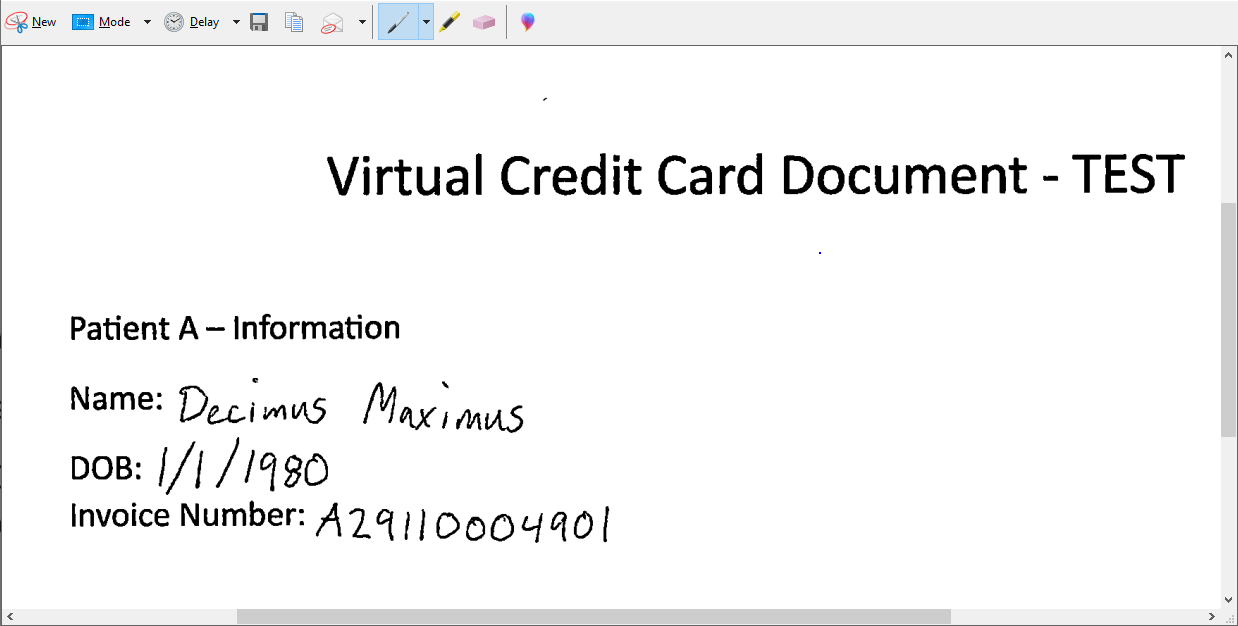 New Mode Delay
Virtual Credit Card Document - TEST
Patient A – Information
Name: Decimus Maximus
DOB: 1/1/1980
Invoice Number: A29110004901